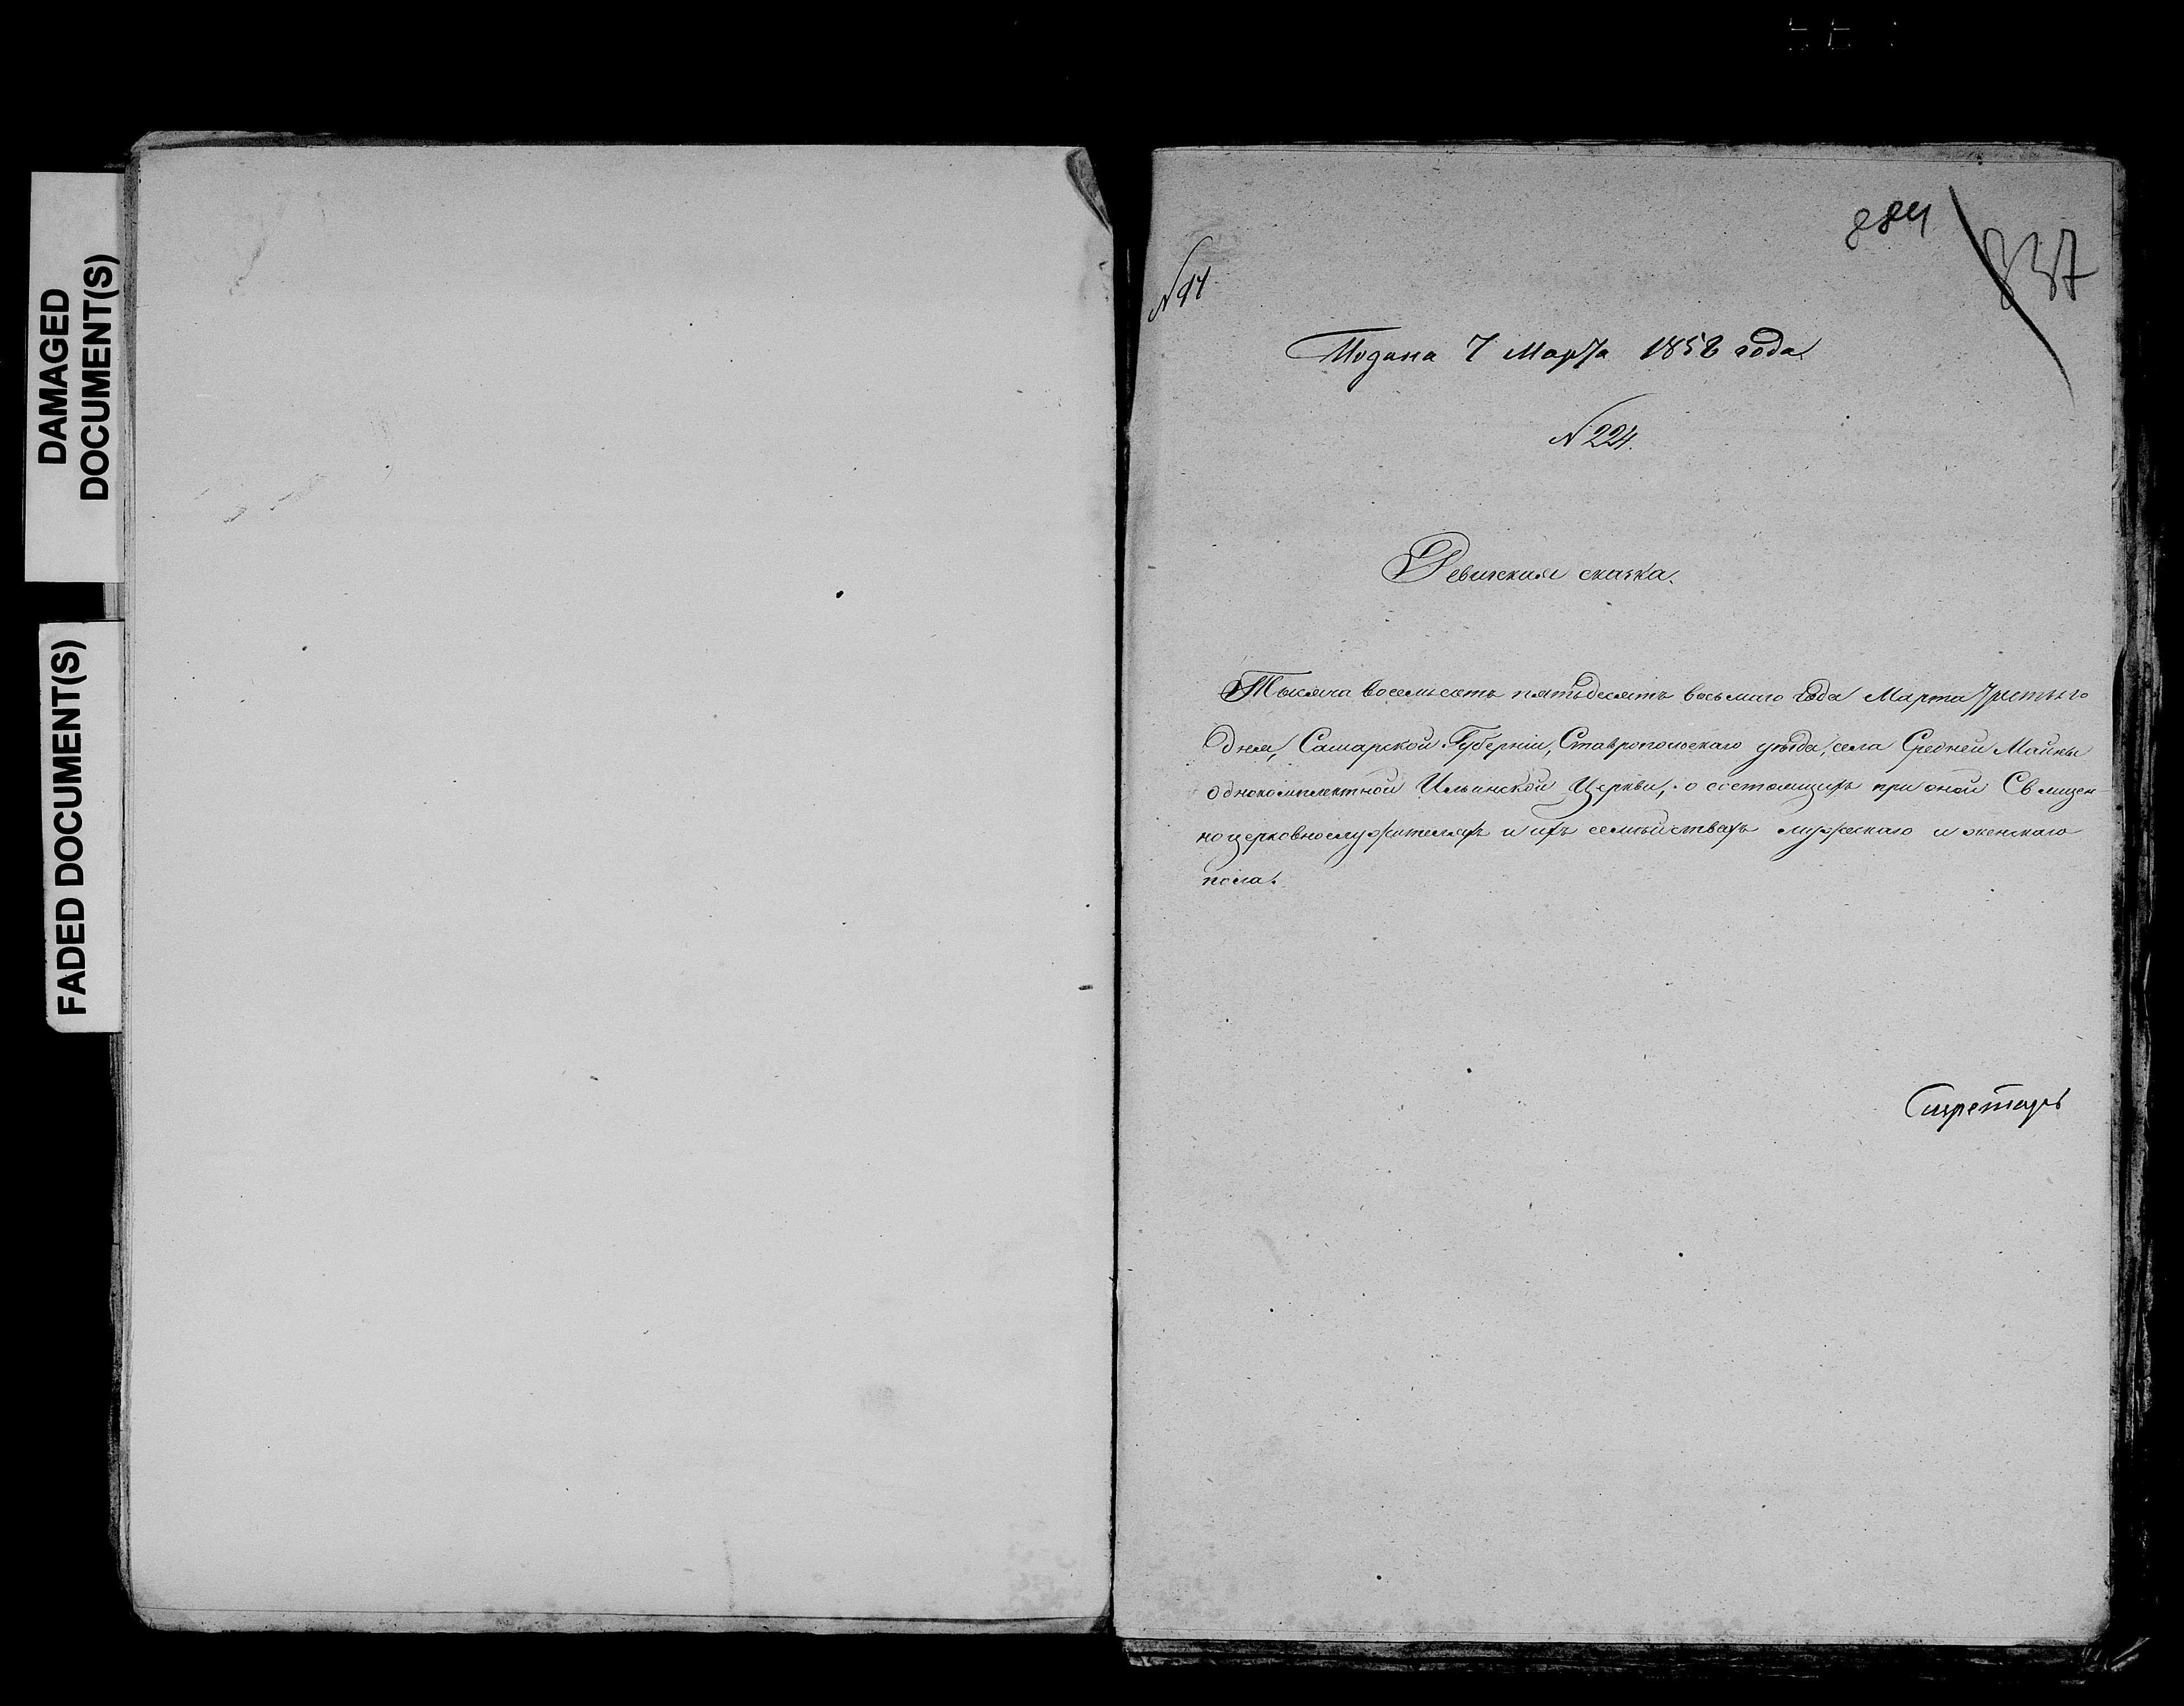 DAMAGED
DOCUMENT(S)
FADED DOCUMENT(S)
884
837
N 91
Подана 7 Марта 1858 года
N 224.
Ревижская сказка.
Тысяча восемьсотъ пятьдесятъ восьмаго года Марта третьяго
дня, Самарской Губерніи, Ставропольскаго уѣзда, села Средней Майны
однокомплектной Ильинской Церкви, о состоящихъ при оной Священ-
ноцерковнослужителяхъ и ихъ семѣйствахъ мужескаго и женскаго
пола.
Секретарь